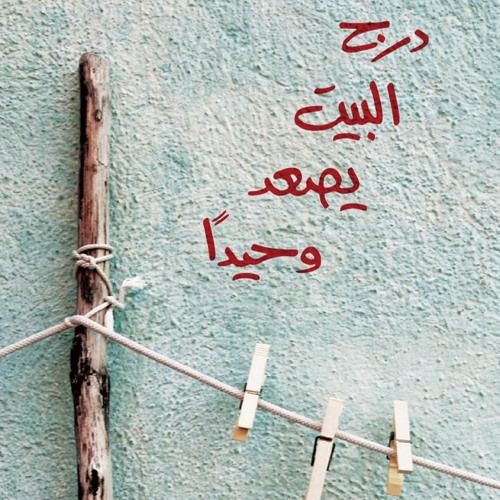 درج
البيت
يصعد
وحيدًا